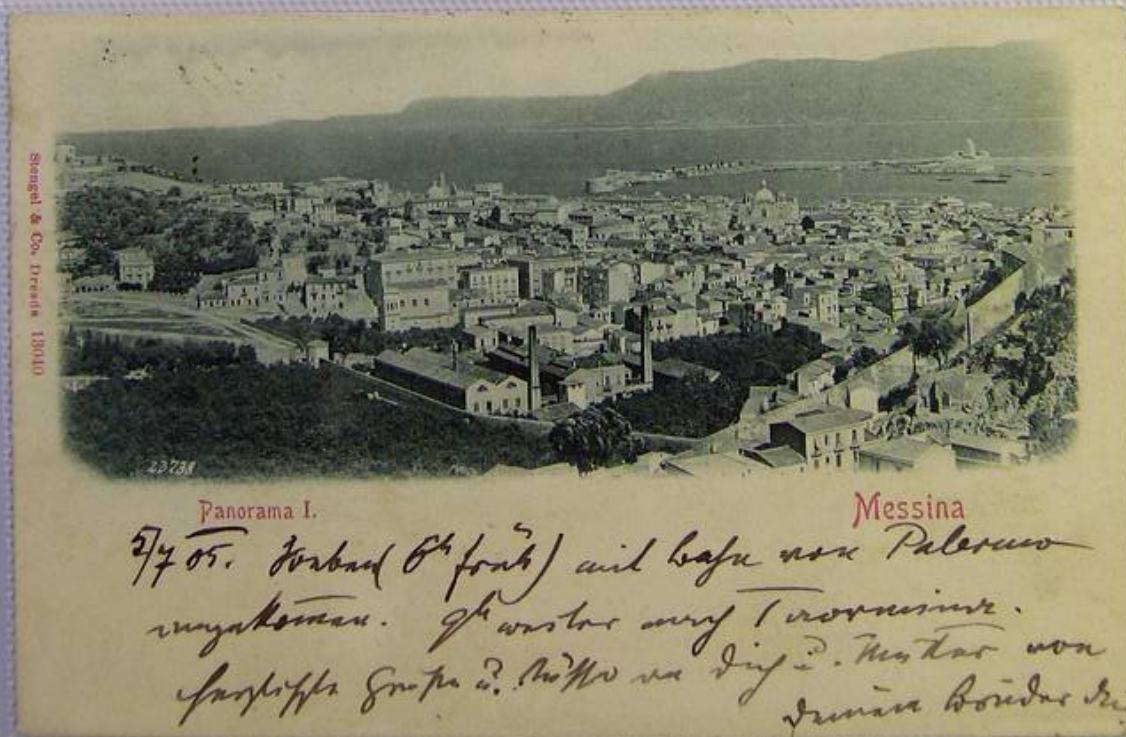 Stengel & Co., Dresde 13010
23738
Panorama I.
Messina
5/7 05. Soeben (6h früh) mit Bahn von Palermo
angekommen. 9h weiter nach Taormina.
Herzliche Grüße u. Küsse an Dich u. Mutter von
Deinem Bruder